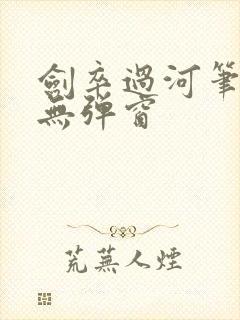 劍卒過河筆
無彈窗
荒蕪人煙